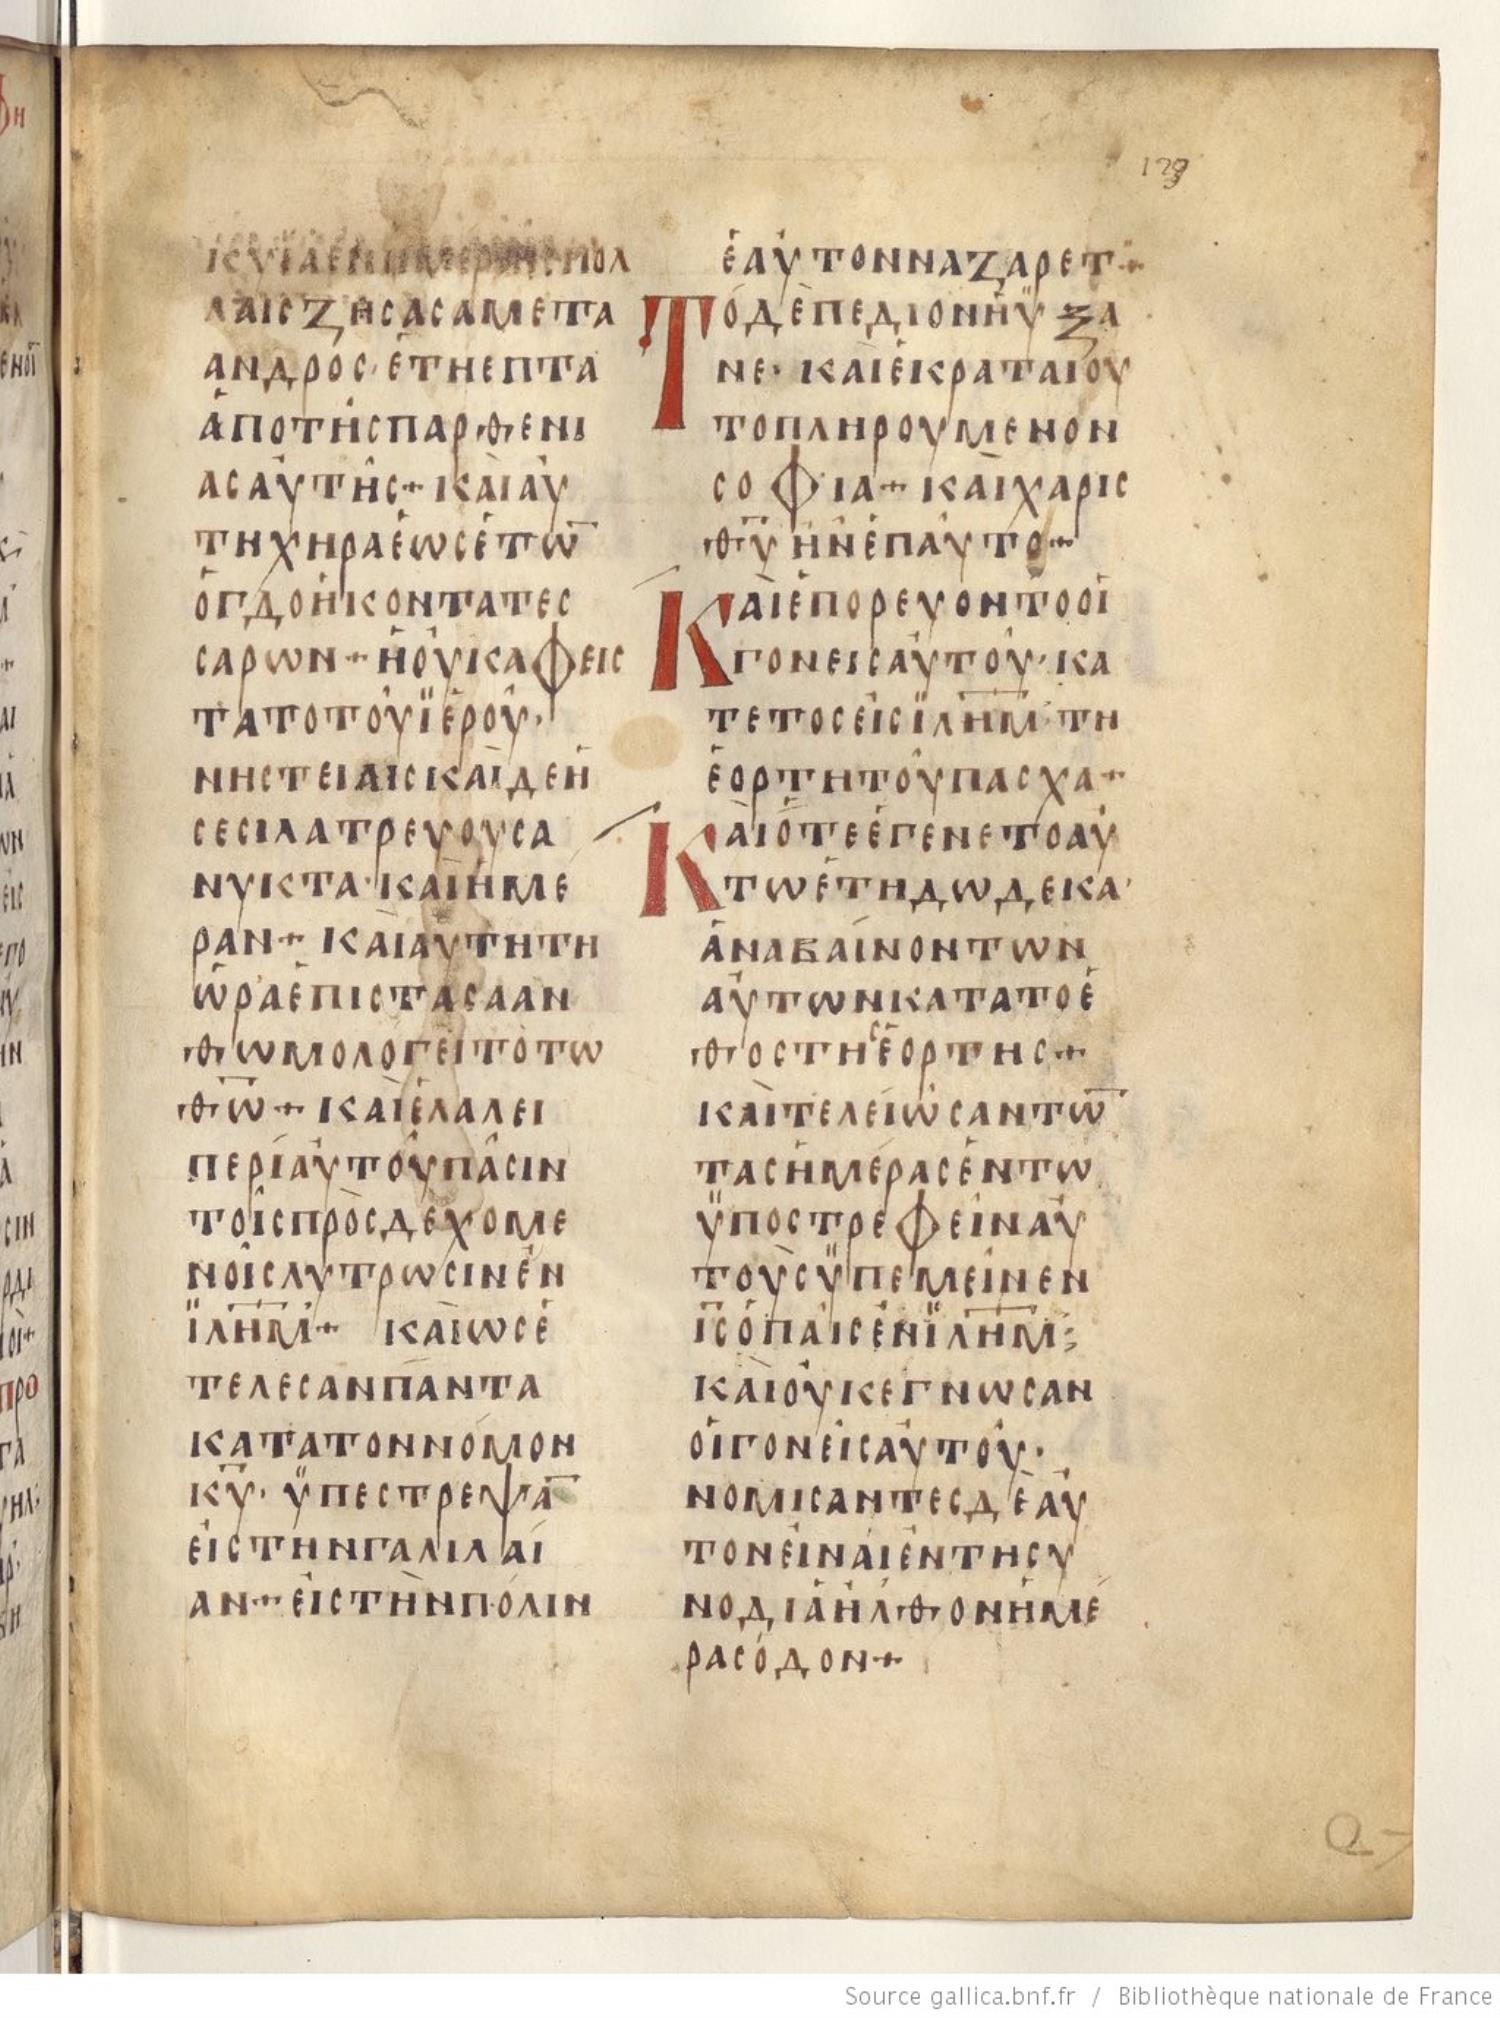 129
ΚΥΙΑΕΝΗΜΕΡΑΙCΠΟΛ
ΛΑΙC ΖΗCΑCΑΜΕΤΑ
ΑΝΔΡΟC· ἐΤΗΕΠΤΑ
ἀΠΟΤΗCΠΑΡΘΕΝΙ
ΑCΑΥΤΗC+ ΚΑΙΑΥ
ΤΗΧΗΡΑἐΩCἐΤΩ̅
ὀΓΔΟΗΚΟΝΤΑΤΕC
CΑΡΩΝ+ ἡΟΥΚΑΦΕΙC
ΤΑΤΟΤΟΥΪΕΡΟΥ·
ΝΗCΤΕΙΑΙCΚΑΙΔΕΗ
CΕCΙΛΑΤΡΕΥΟΥCΑ
ΝΥΚΤΑ·ΚΑΙΗΜΕ
ΡΑΝ+ ΚΑΙΑΥΤΗΤΗ
ὡΡΑἐΠΙCΤΑCΑΑΝ
ΘΩΜΟΛΟΓΕΙΤΟΤΩ
Θ̅Ω̅+ ΚΑΙἐΛΑΛΕΙ
ΠΕΡΙΑΥΤΟΥΠΑCΙΝ
ΤΟΙCΠΡΟCΔΕΧΟΜΕ
ΝΟΙCΛΥΤΡΩCΙΝἐΝ
Ϊ̅Λ̅Η̅Μ̅+ ΚΑΙΩCἐ
ΤΕΛΕCΑΝΠΑΝΤΑ
ΚΑΤΑΤΟΝΝΟΜΟΝ
Κ̅Υ̅· ΫΠΕCΤΡΕΨΑ̅
ΕΙCΤΗΝΓΑΛΙΛΑΙ
ΑΝ+ ΕΙCΤΗΝΠΟΛΙΝ
ἑΑΥΤΟΝΝΑΖΑΡΕΤ+
ΤΟΔΕΠΕΔΙΟΝΗΥΞΑ
ΝΕ· ΚΑΙἐΚΡΑΤΑΙΟΥ
ΤΟΠΛΗΡΟΥΜΕΝΟΝ
CΟΦΙΑ+ ΚΑΙΧΑΡΙC
Θ̅Υ̅ΗΝἐΠΑΥΤΟ+
ΚΑΙἐΠΟΡΕΥΟΝΤΟΟΙ
ΓΟΝΕΙCΑΥΤΟΥ· ΚΑ
ΤΕΤΟCΕΙCΪ̅Λ̅Η̅Μ̅·ΤΗ
ἑΟΡΤΗΤΟΥΠΑCΧΑ+
ΚΑΙΟΤΕἐΓΕΝΕΤΟΑΥ
ΤΩἐΤΗΔΩΔΕΚΑ·
ἀΝΑΒΑΙΝΟΝΤΩΝ
ΑΥΤΩΝΚΑΤΑΤΟἐ
ΘΟCΤΗCἑΟΡΤΗC+
ΚΑΙΤΕΛΕΙΩCΑΝΤΩ̅
ΤΑCΗΜΕΡΑCἐΝΤΩ
ΫΠΟCΤΡΕΦΕΙΝΑΥ
ΤΟΥCΫΠΕΜΕΙΝΕΝ
Ι̅C̅ΟΠΑΙCἐΝΪ̅Λ̅Η̅Μ̅:
ΚΑΙΟΥΚΕΓΝΩCΑΝ
ΟΙΓΟΝΕΙCΑΥΤΟΥ·
ΝΟΜΙCΑΝΤΕCΔΕΑΥ
ΤΟΝΕΙΝΑΙἐΝΤΗCΥ
ΝΟΔΙΑΗΛΘΟΝΗΜΕ
ΡΑCΟΔΟΝ+
Source gallica.bnf.fr / Bibliothèque nationale de France